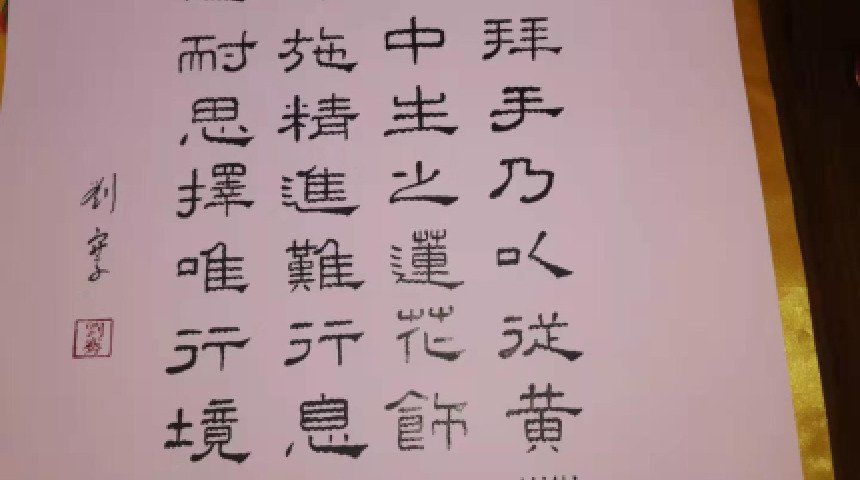 拜手乃以從黄
中生之蓮花飾
施精進難行息
耐思擇唯行境
劉